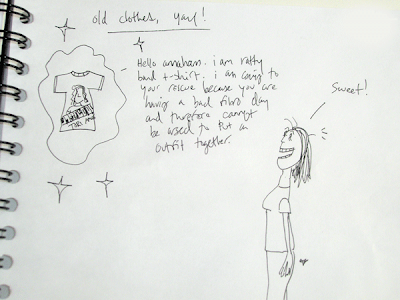 old clothes, yay!
Hello annaham. i am ratty
band t-shirt. i am coming to
your rescue because you are
having a bad fibro day
and therefore cannot
be arsed to put an
outfit together.
Sweet!